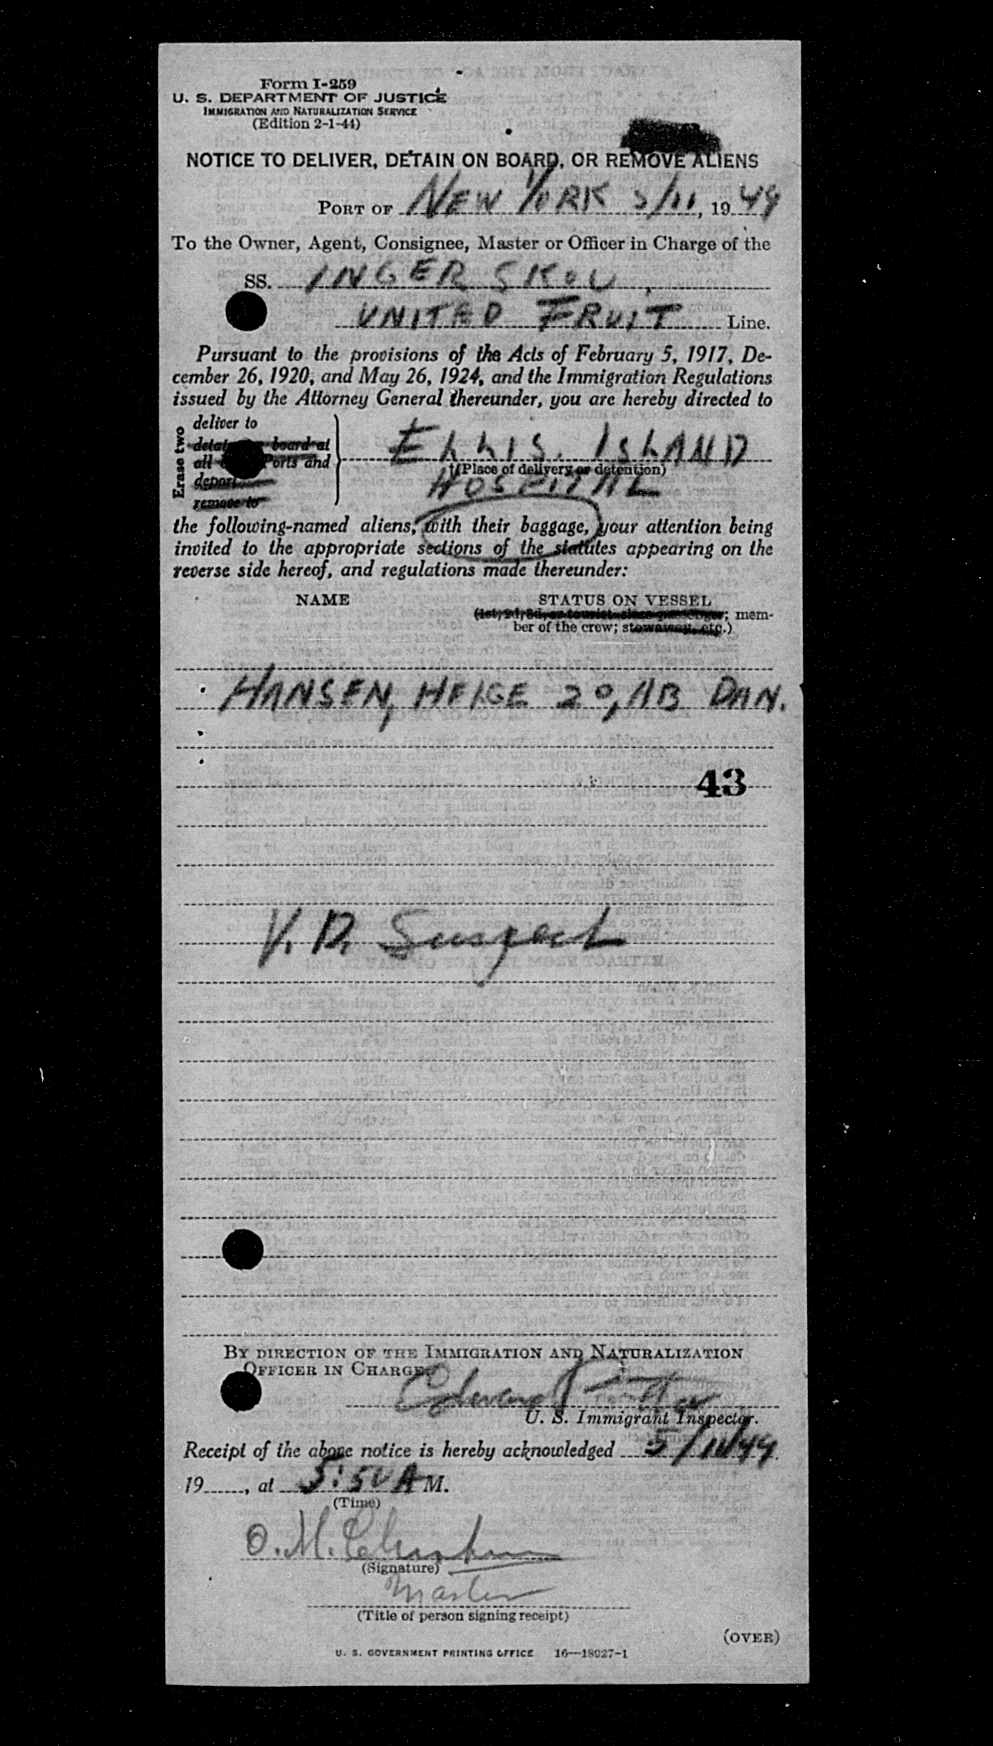 Form I-259
U. S. DEPARTMENT OF JUSTICE
IMMIGRATION AND NATURALIZATION SERVICE
(Edition 2-1-44)
NOTICE TO DELIVER, DETAIN ON BOARD, OR REMOVE ALIENS
PORT OF NEW YORK 5/11, 1949
To the Owner, Agent, Consignee, Master or Officer in Charge of the
SS. INGER SKOU,
UNITED FRUIT Line.
Pursuant to the provisions of the Acts of February 5, 1917, De-
cember 26, 1920, and May 26, 1924, and the Immigration Regulations
issued by the Attorney General thereunder, you are hereby directed to
Erase two
deliver to
detain on board at
all Ports and
deport
remove to
ELLIS ISLAND
(Place of delivery or detention)
HOSPITAL
the following-named aliens, with their baggage, your attention being
invited to the appropriate sections of the statutes appearing on the
reverse side hereof, and regulations made thereunder:
NAME STATUS ON VESSEL
(1st, 2d, 3d, or tourist class passenger; mem-
ber of the crew; stowaway, etc.)
HANSEN, HELGE 20, AB DAN.
43
V.D. Suspect
BY DIRECTION OF THE IMMIGRATION AND NATURALIZATION
OFFICER IN CHARGE
Edward
U. S. Immigrant Inspector.
Receipt of the above notice is hereby acknowledged 5/11/49
19, at 5:50 A M.
(Time)
O. M.
(Signature)
Master
(Title of person signing receipt)
(OVER)
U. S. GOVERNMENT PRINTING OFFICE 16—18927-1